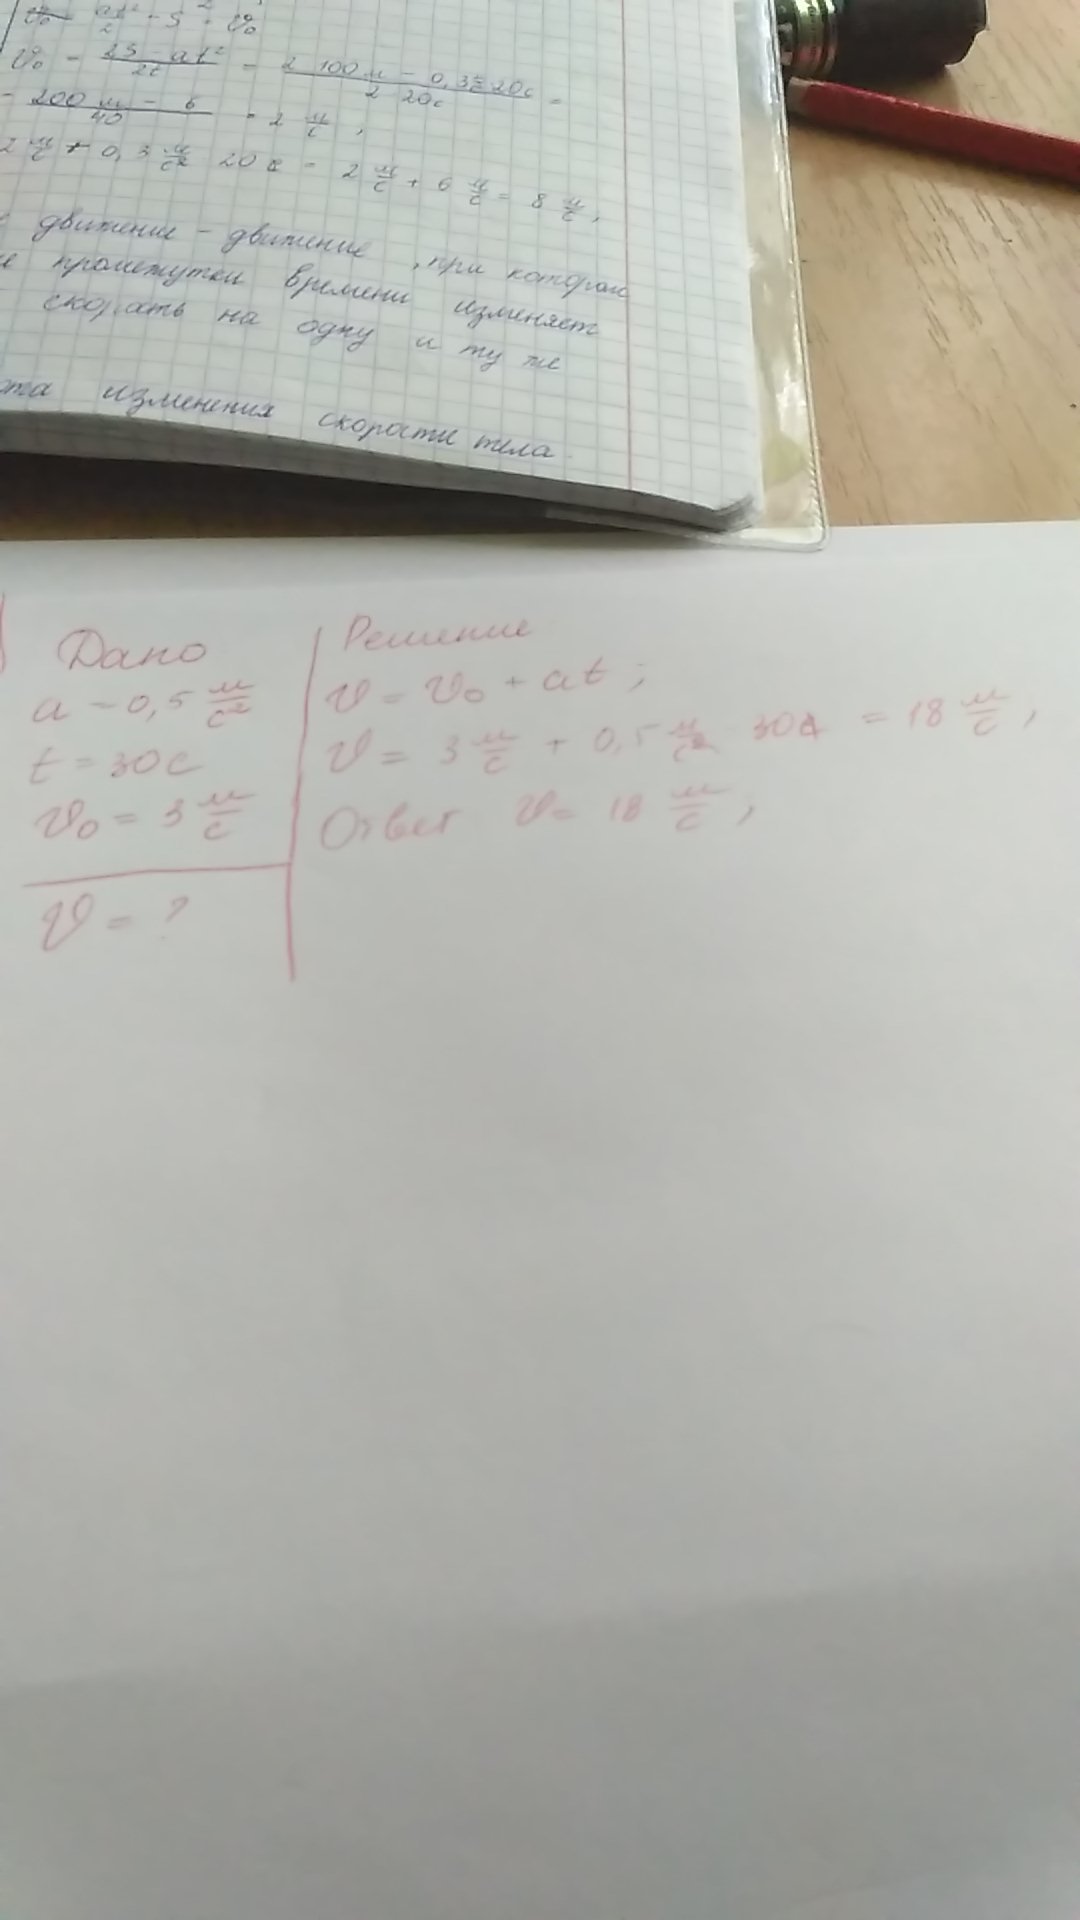 v₀ = (2S - at²)/2t = (2 100 м - 0,3 20с)/(2 20с) =
- (200 м - 6)/40 = 2 м/с ,
2 м/с + 0,3 м/с² 20 с = 2 м/с + 6 м/с = 8 м/с ,
движение - движение , при котором
е промежутки времени изменяет
скорость на одну и ту же
ота изменения скорости тела.
Дано
Решение
a - 0,5 м/с²
v = v₀ + at ;
t = 30с
v = 3 м/с + 0,5 м/с² 30с = 18 м/с ,
v₀ = 3 м/с
Ответ v = 18 м/с ;
v = ?